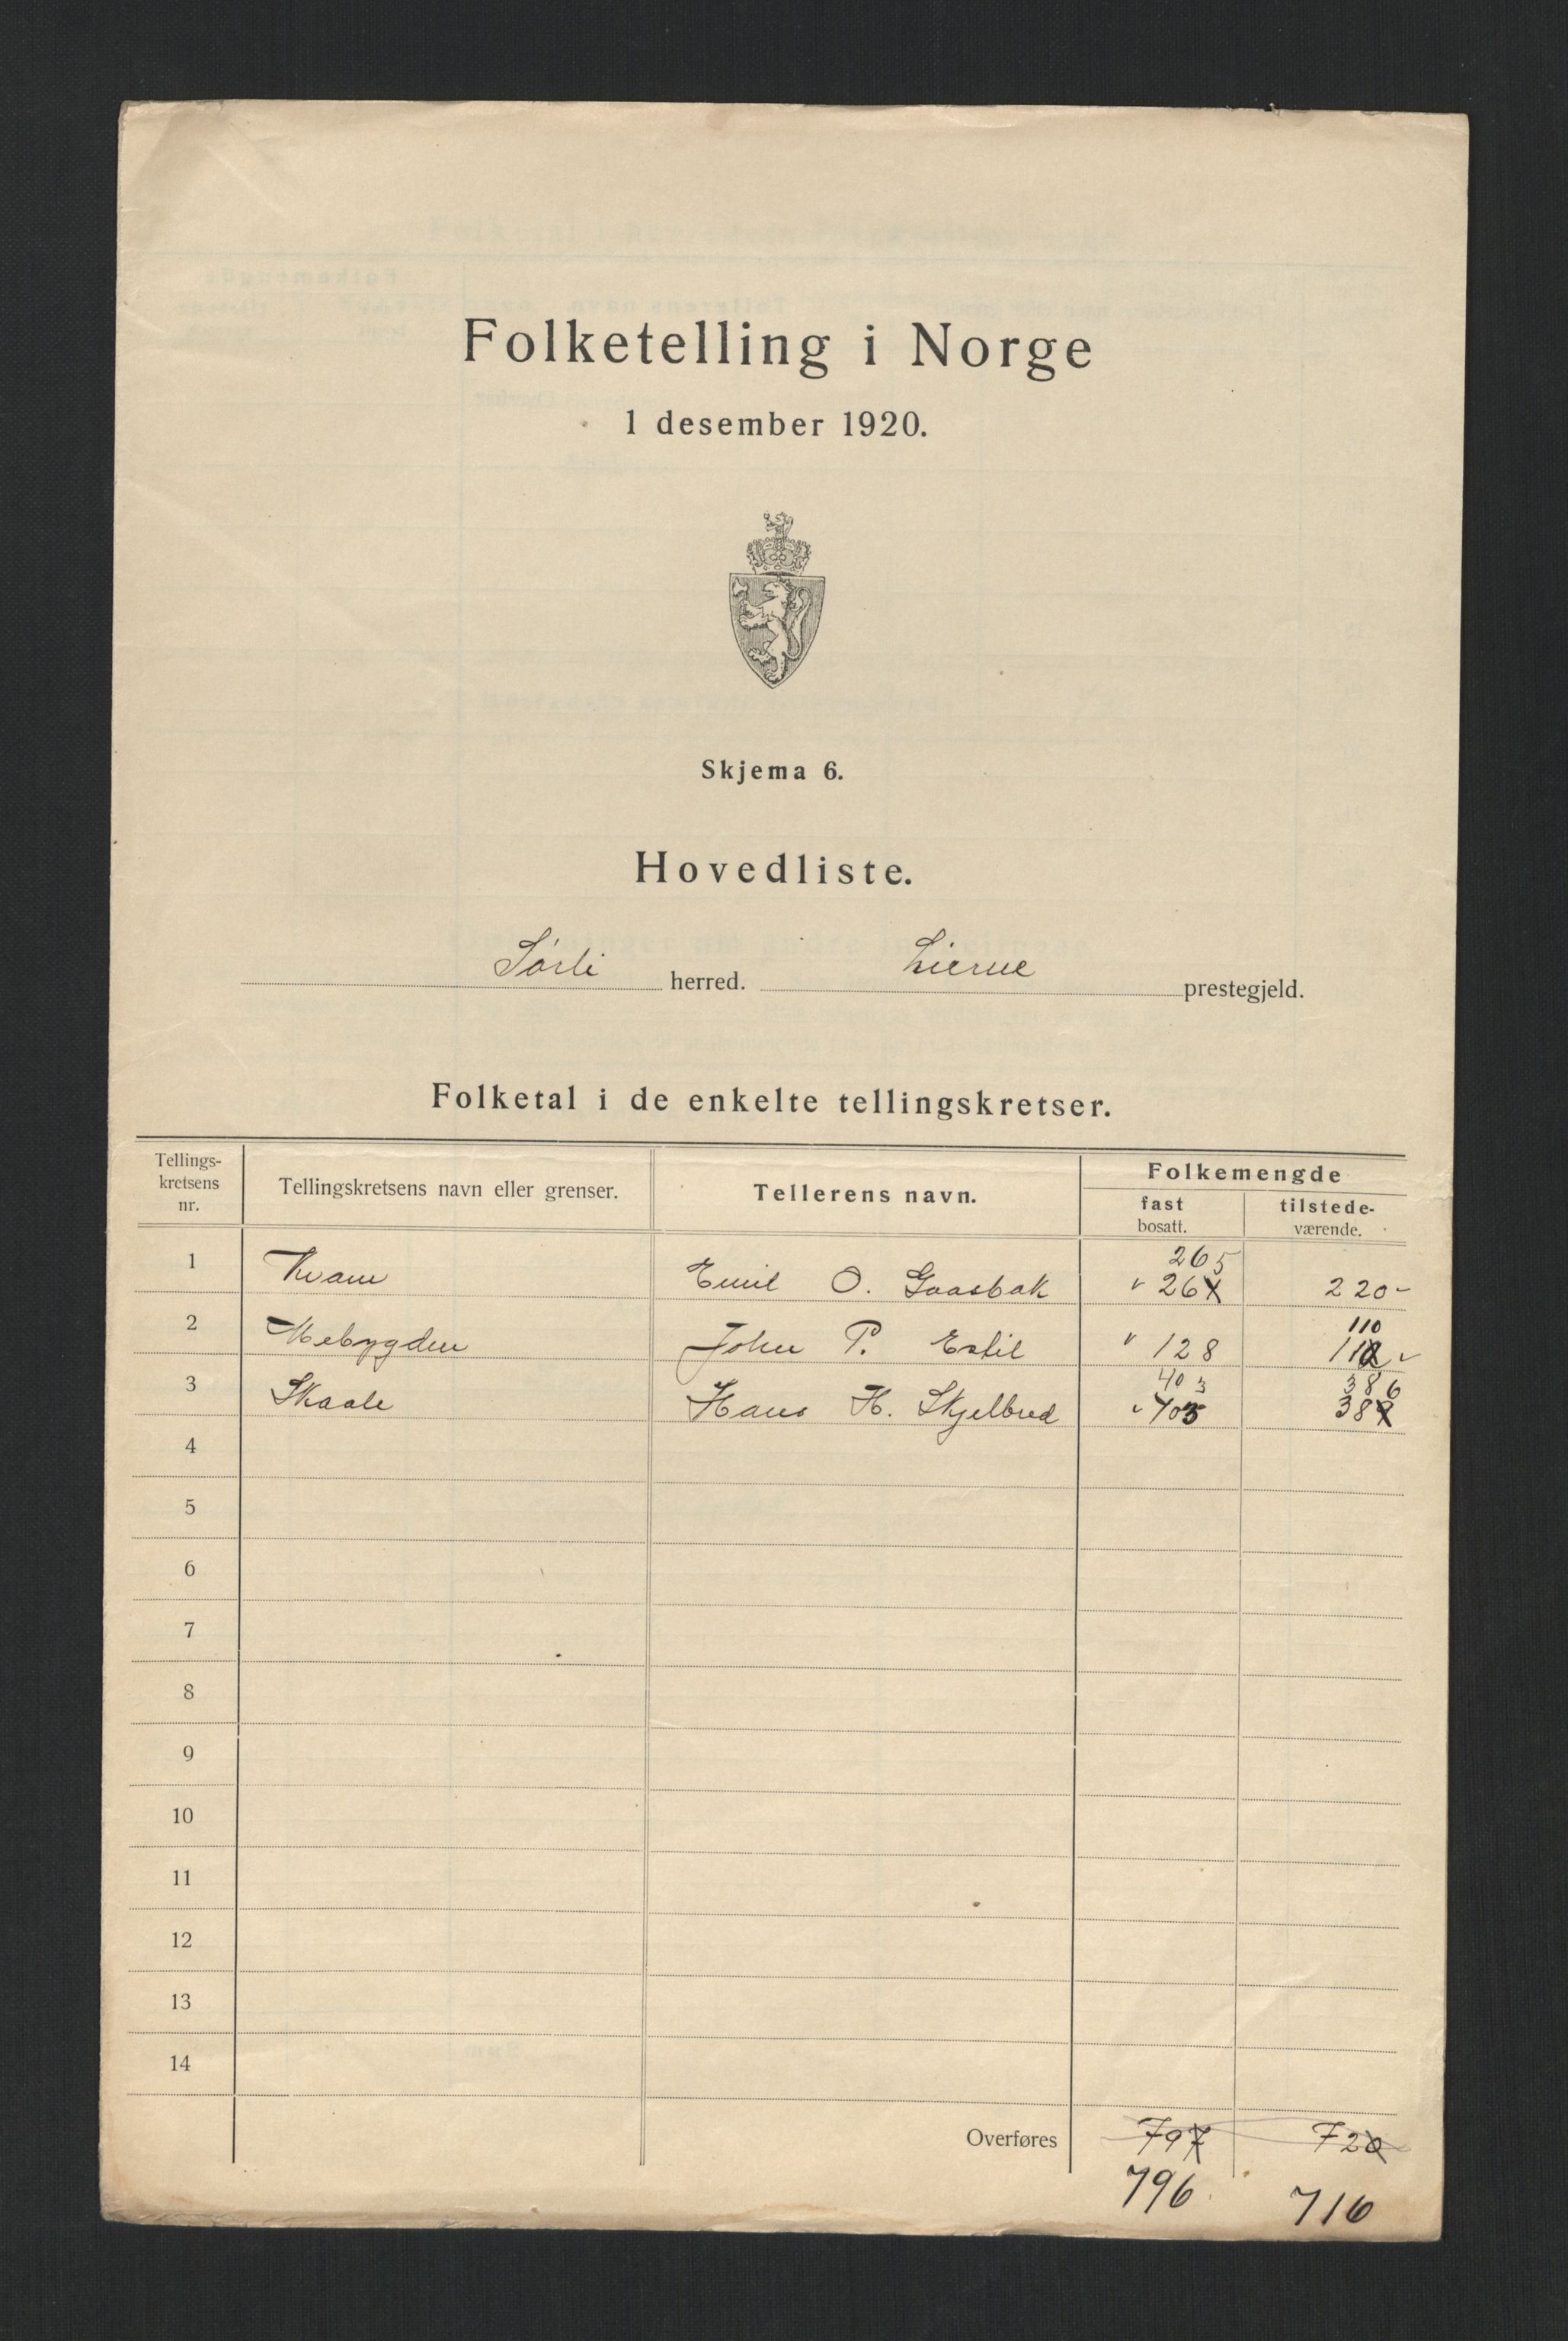 Folketelling i Norge
1 desember 1920.
Skjema 6.
Hovedliste.
Sørli herred. Lierne prestegjeld.
Folketal i de enkelte tellingskretser.
Tellings-
kretsens
nr.
Tellingskretsens navn eller grenser.
Tellerens navn.
Folkemengde
fast
bosatt.
tilstede-
værende.
265
1 Kvam Emil O. Gaasbak 26 220
110
2 Mebygden John P. Estil 128 112
403 386
3 Skaale Hans H. Skjelbred 405 389
4
5
6
7
8
9
10
11
12
13
14
Overføres 797 720
796. 716